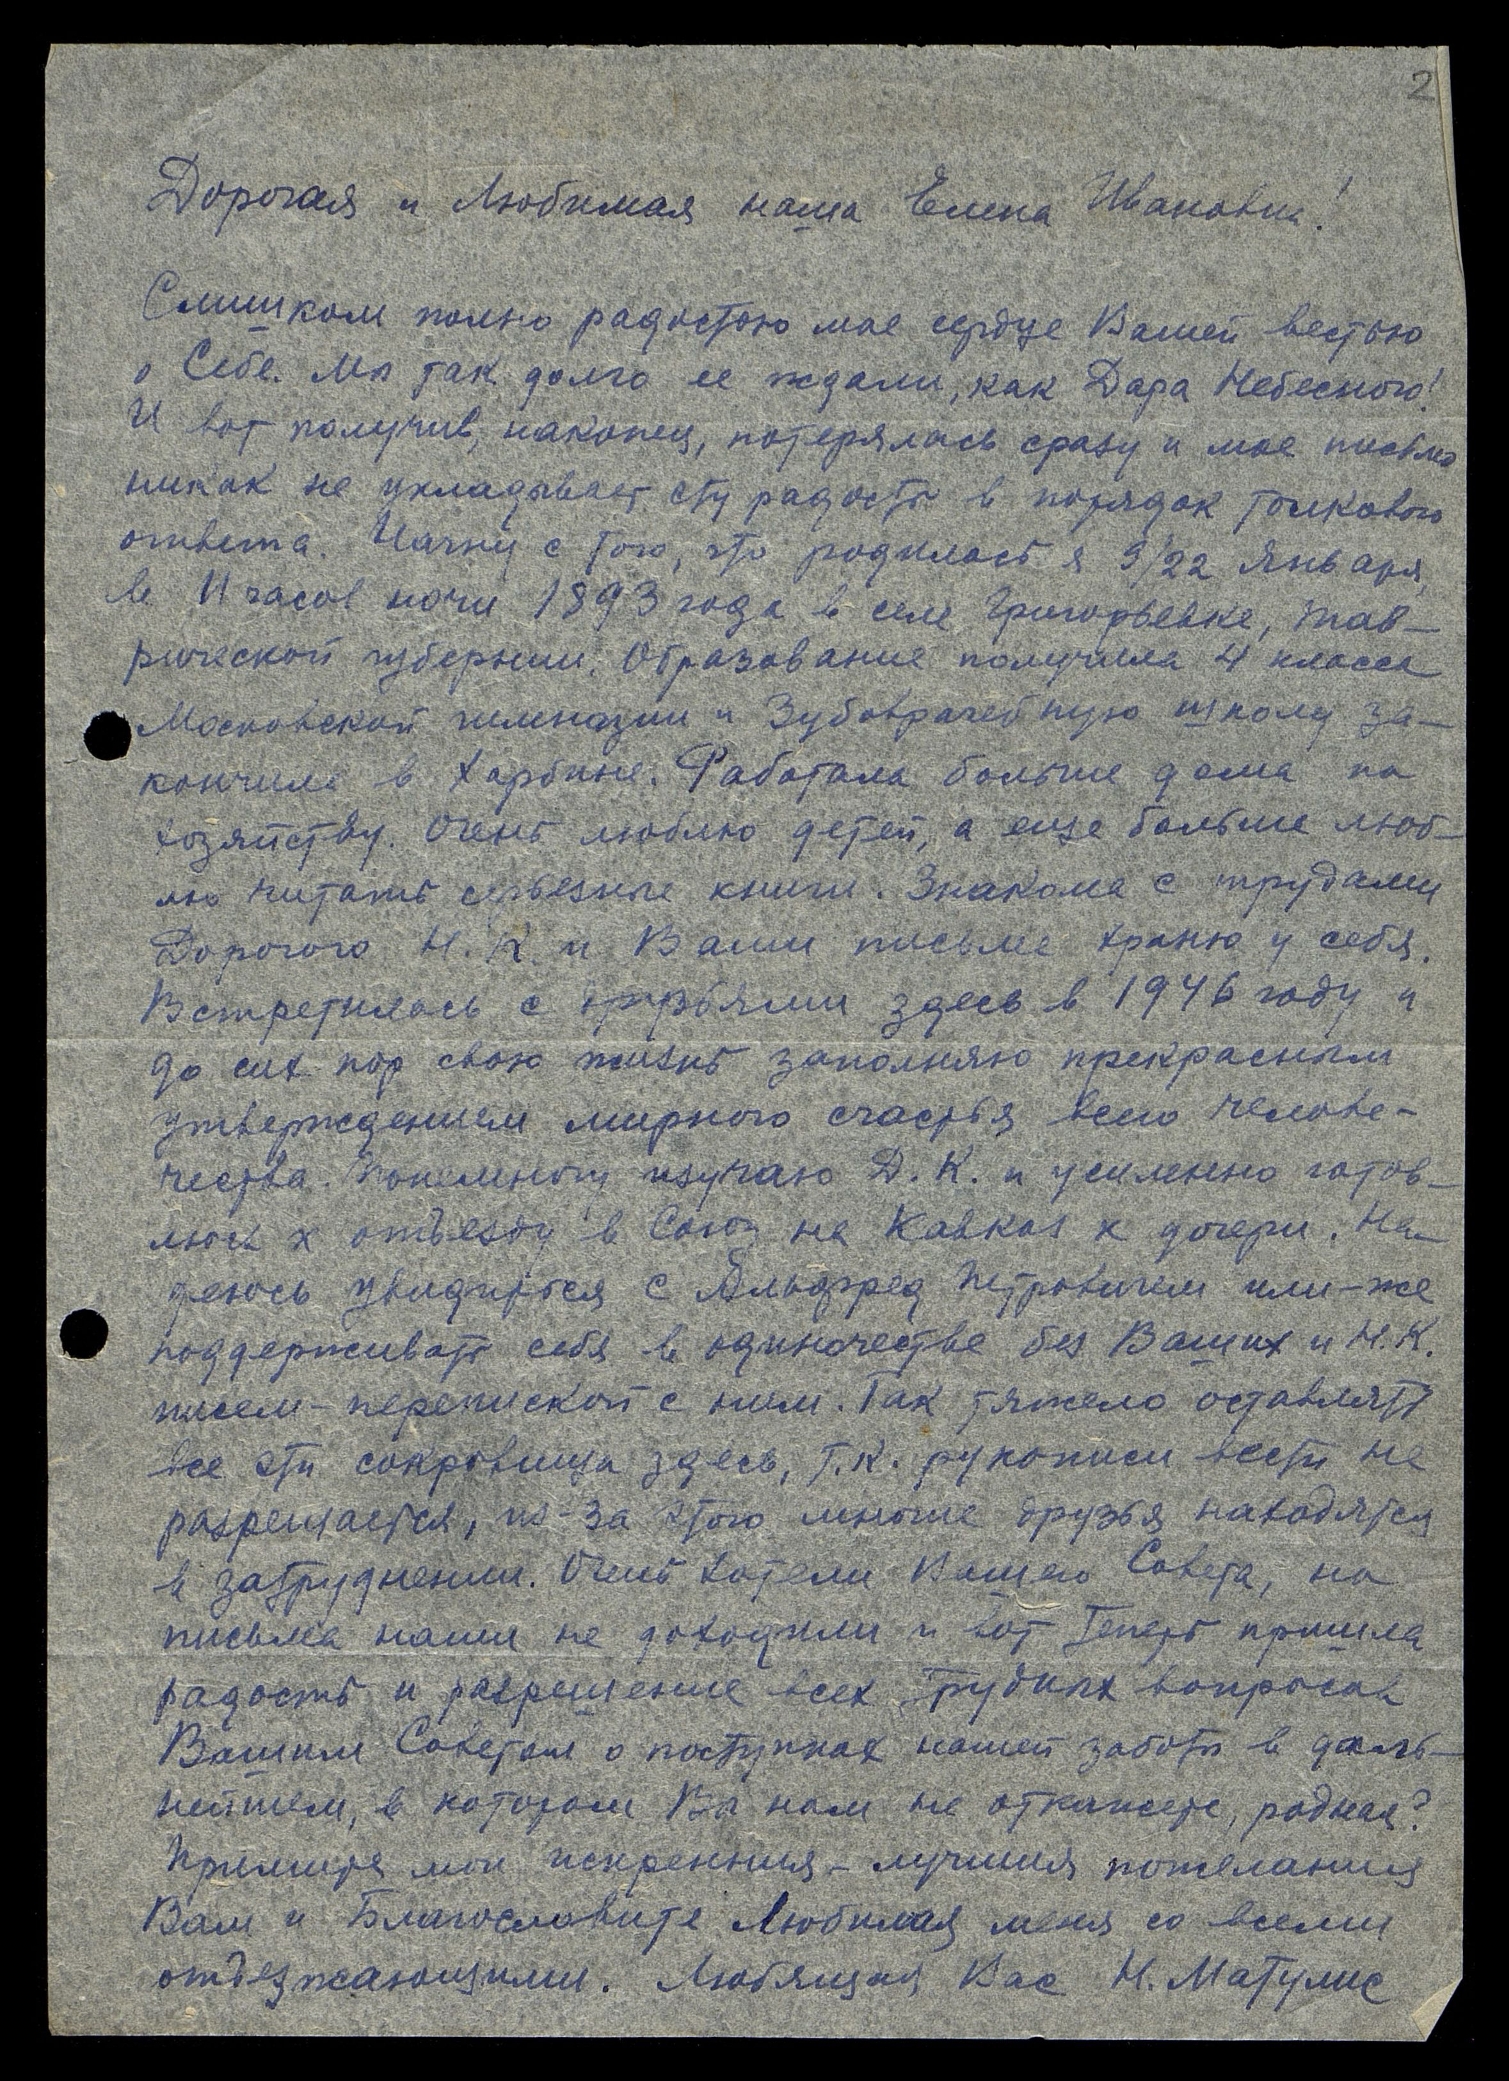 2
Дорогая и Любимая наша Елена Ивановна!
Слишком полно радостью мое сердце Вашей вестью
о Себе. Мы так долго ее ждали, как Дара Небесного!
И вот получив, наконец, потерялась сразу и мое письмо
никак не укладывает эту радость в порядок толкового
ответа. Начну с того, что родилась я 9/22 Января
в 11 часов ночи 1893 года в селе Григорьевке, Тав-
рической губернии. Образование получила 4 класса
Московской гимназии и Зубоврачебную школу за-
кончила в Харбине. Работала больше дома по
хозяйству. Очень люблю детей, а еще больше люб-
лю читать серьезные книги. Знакома с трудами
Дорогого Н.К. и Ваши письма храню у себя.
Встретилась с друзьями здесь в 1946 году и
до сих пор свою жизнь заполняю прекрасным
утверждением мирного счастья всего челове-
чества. Понемногу изучаю Д.К. и усиленно готов-
люсь к отъезду в Союз на Кавказ к дочери. На-
деюсь увидиться с Альфред Петровичем или-же
поддерживать себя в одиночестве без Ваших и Н.К.
писем - перепиской с ним. Так тяжело оставлять
все эти сокровища здесь, т.к. рукописи везти не
разрешается, из-за этого многие друзья находятся
в затруднении. Очень хотели Вашего Совета, но
письма наши не доходили и вот теперь пришла
радость и разрешение всех трудных вопросов
Вашим Советом о поступках нашей заботы в даль-
нейшем, в котором Вы нам не откажете, родная?
Примите мои искренния - лучшия пожелания
Вам и Благословите Любимая меня со всеми
отъезжающими. Любящая Вас Н. Матулис